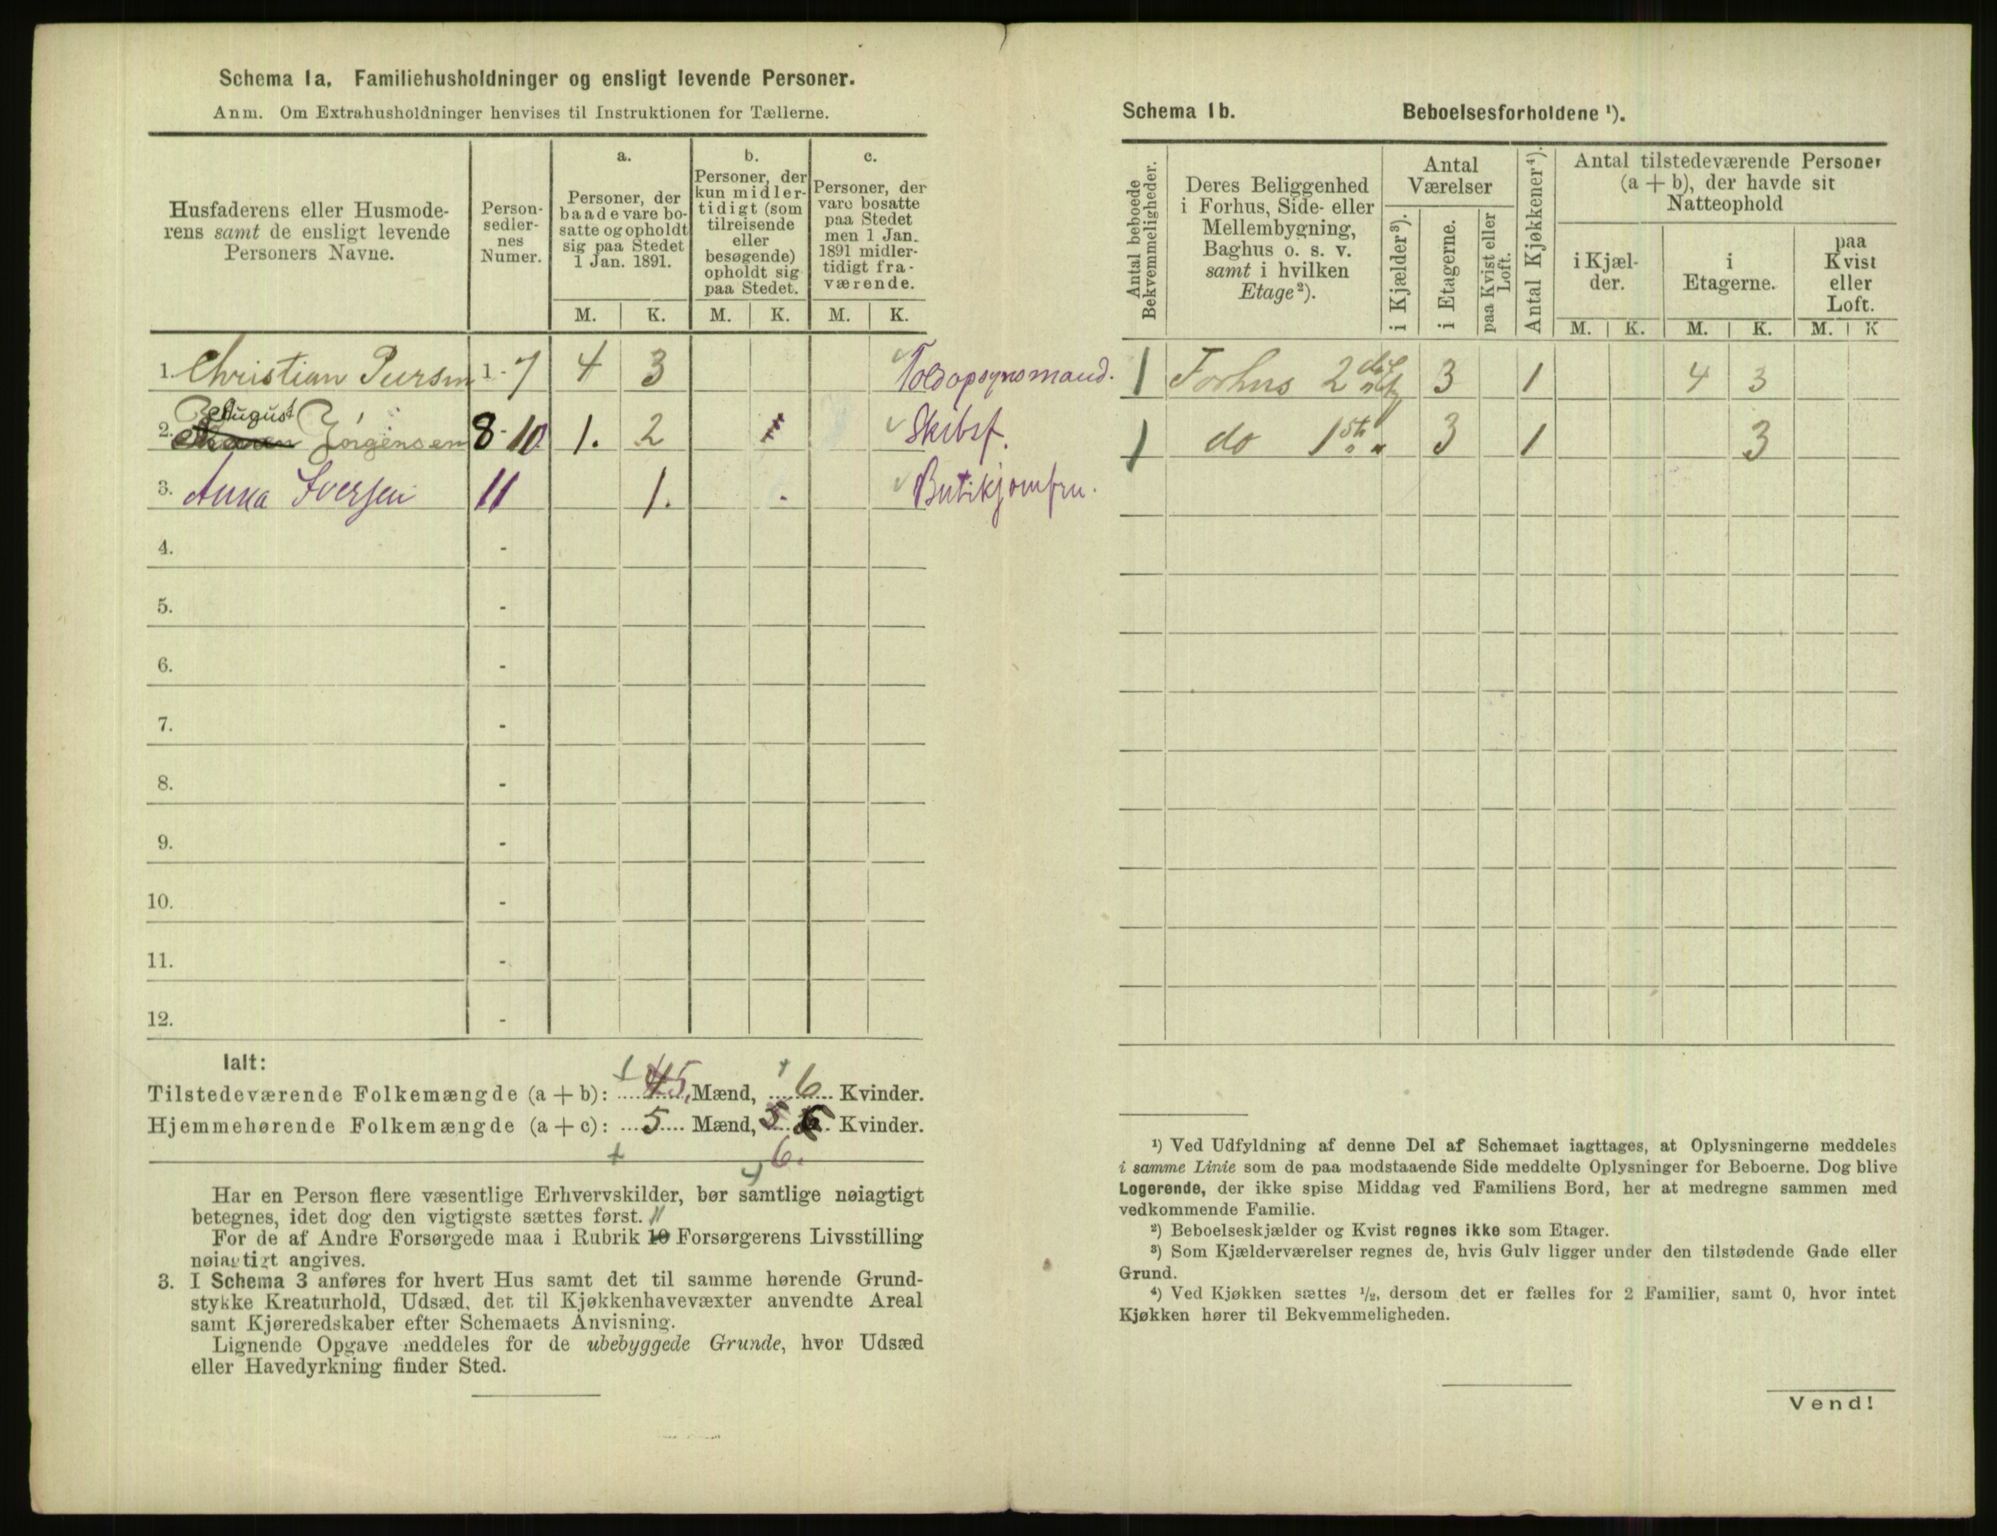 Schema 1a. Familiehusholdninger og ensligt levende Personer.
Anm. Om Extrahusholdninger henvises til Instruktionen for Tællerne.
Husfaderens eller Husmode-
rens samt de ensligt levende
Personers Navne.
Person-
sedler-
nes
Numer.
a.
Personer, der
baade vare bo-
satte og opholdt
sig paa Stedet
1 Jan. 1891.
b.
Personer, der
kun midler-
tidigt (som
tilreisende
eller
besøgende)
opholdt sig
paa Stedet.
c.
Personer, der
vare bosatte
paa Stedet
men 1 Jan.
1891 midler-
tidigt fra-
værende.
M. K. M. K. M. K.
1. Christian 1 - 7 4 3 Toldopsynsmand.
August
2. Jörgensen 8 - 10 1. 2 Skibsf.
3. Anna Iversen 11 1. Butikjomfru.
4. -
5. -
6. -
7. -
8. -
9. -
10. -
11. -
12. -
Ialt:
Tilstedeværende Folkemængde (a + b): 5. Mænd, 6 Kvinder.
Hjemmehørende Folkemængde (a + c): 5 Mænd, 5 6 Kvinder.
6.
Har en Person flere væsentlige Erhvervskilder, bør samtlige nøiagtigt
betegnes, idet dog den vigtigste sættes først.
11
For de af Andre Forsørgede maa i Rubrik 10 Forsørgerens Livsstilling
nøiagtigt angives.
3. I Schema 3 anføres for hvert Hus samt det til samme hørende Grund-
stykke Kreaturhold, Udsæd, det til Kjøkkenhavevæxter anvendte Areal
samt Kjøreredskaber efter Schemaets Anvisning.
Lignende Opgave meddeles for de ubebyggede Grunde, hvor Udsæd
eller Havedyrkning finder Sted.
Schema 1b. Beboelsesforholdene ¹).
Antal beboede
Bekvemmeligheder.
Deres Beliggenhed
i Forhus, Side- eller
Mellembygning,
Baghus o. s. v.
samt i hvilken
Etage²).
Antal
Værelser
i Kjælder³).
i Etagerne.
paa Kvist eller
Loft.
Antal Kjøkkener⁴).
Antal tilstedeværende Personer
(a + b), der havde sit
Natteophold
i Kjæl-
der.
i
Etagerne.
paa
Kvist
eller
Loft.
M. K. M. K. M. K
1 Forhus 2 3 1 4 3
1 do 1ste " 3 1 3
¹) Ved Udfyldning af denne Del af Schemaet iagttages, at Oplysningerne meddeles
i samme Linie som de paa modstaaende Side meddelte Oplysninger for Beboerne. Dog blive
Logerende, der ikke spise Middag ved Familiens Bord, her at medregne sammen med
vedkommende Familie.
²) Beboelseskjælder og Kvist regnes ikke som Etager.
³) Som Kjælderværelser regnes de, hvis Gulv ligger under den tilstødende Gade eller
Grund.
⁴) Ved Kjøkken sættes ½, dersom det er fælles for 2 Familier, samt 0, hvor intet
Kjøkken hører til Bekvemmeligheden.
Vend!